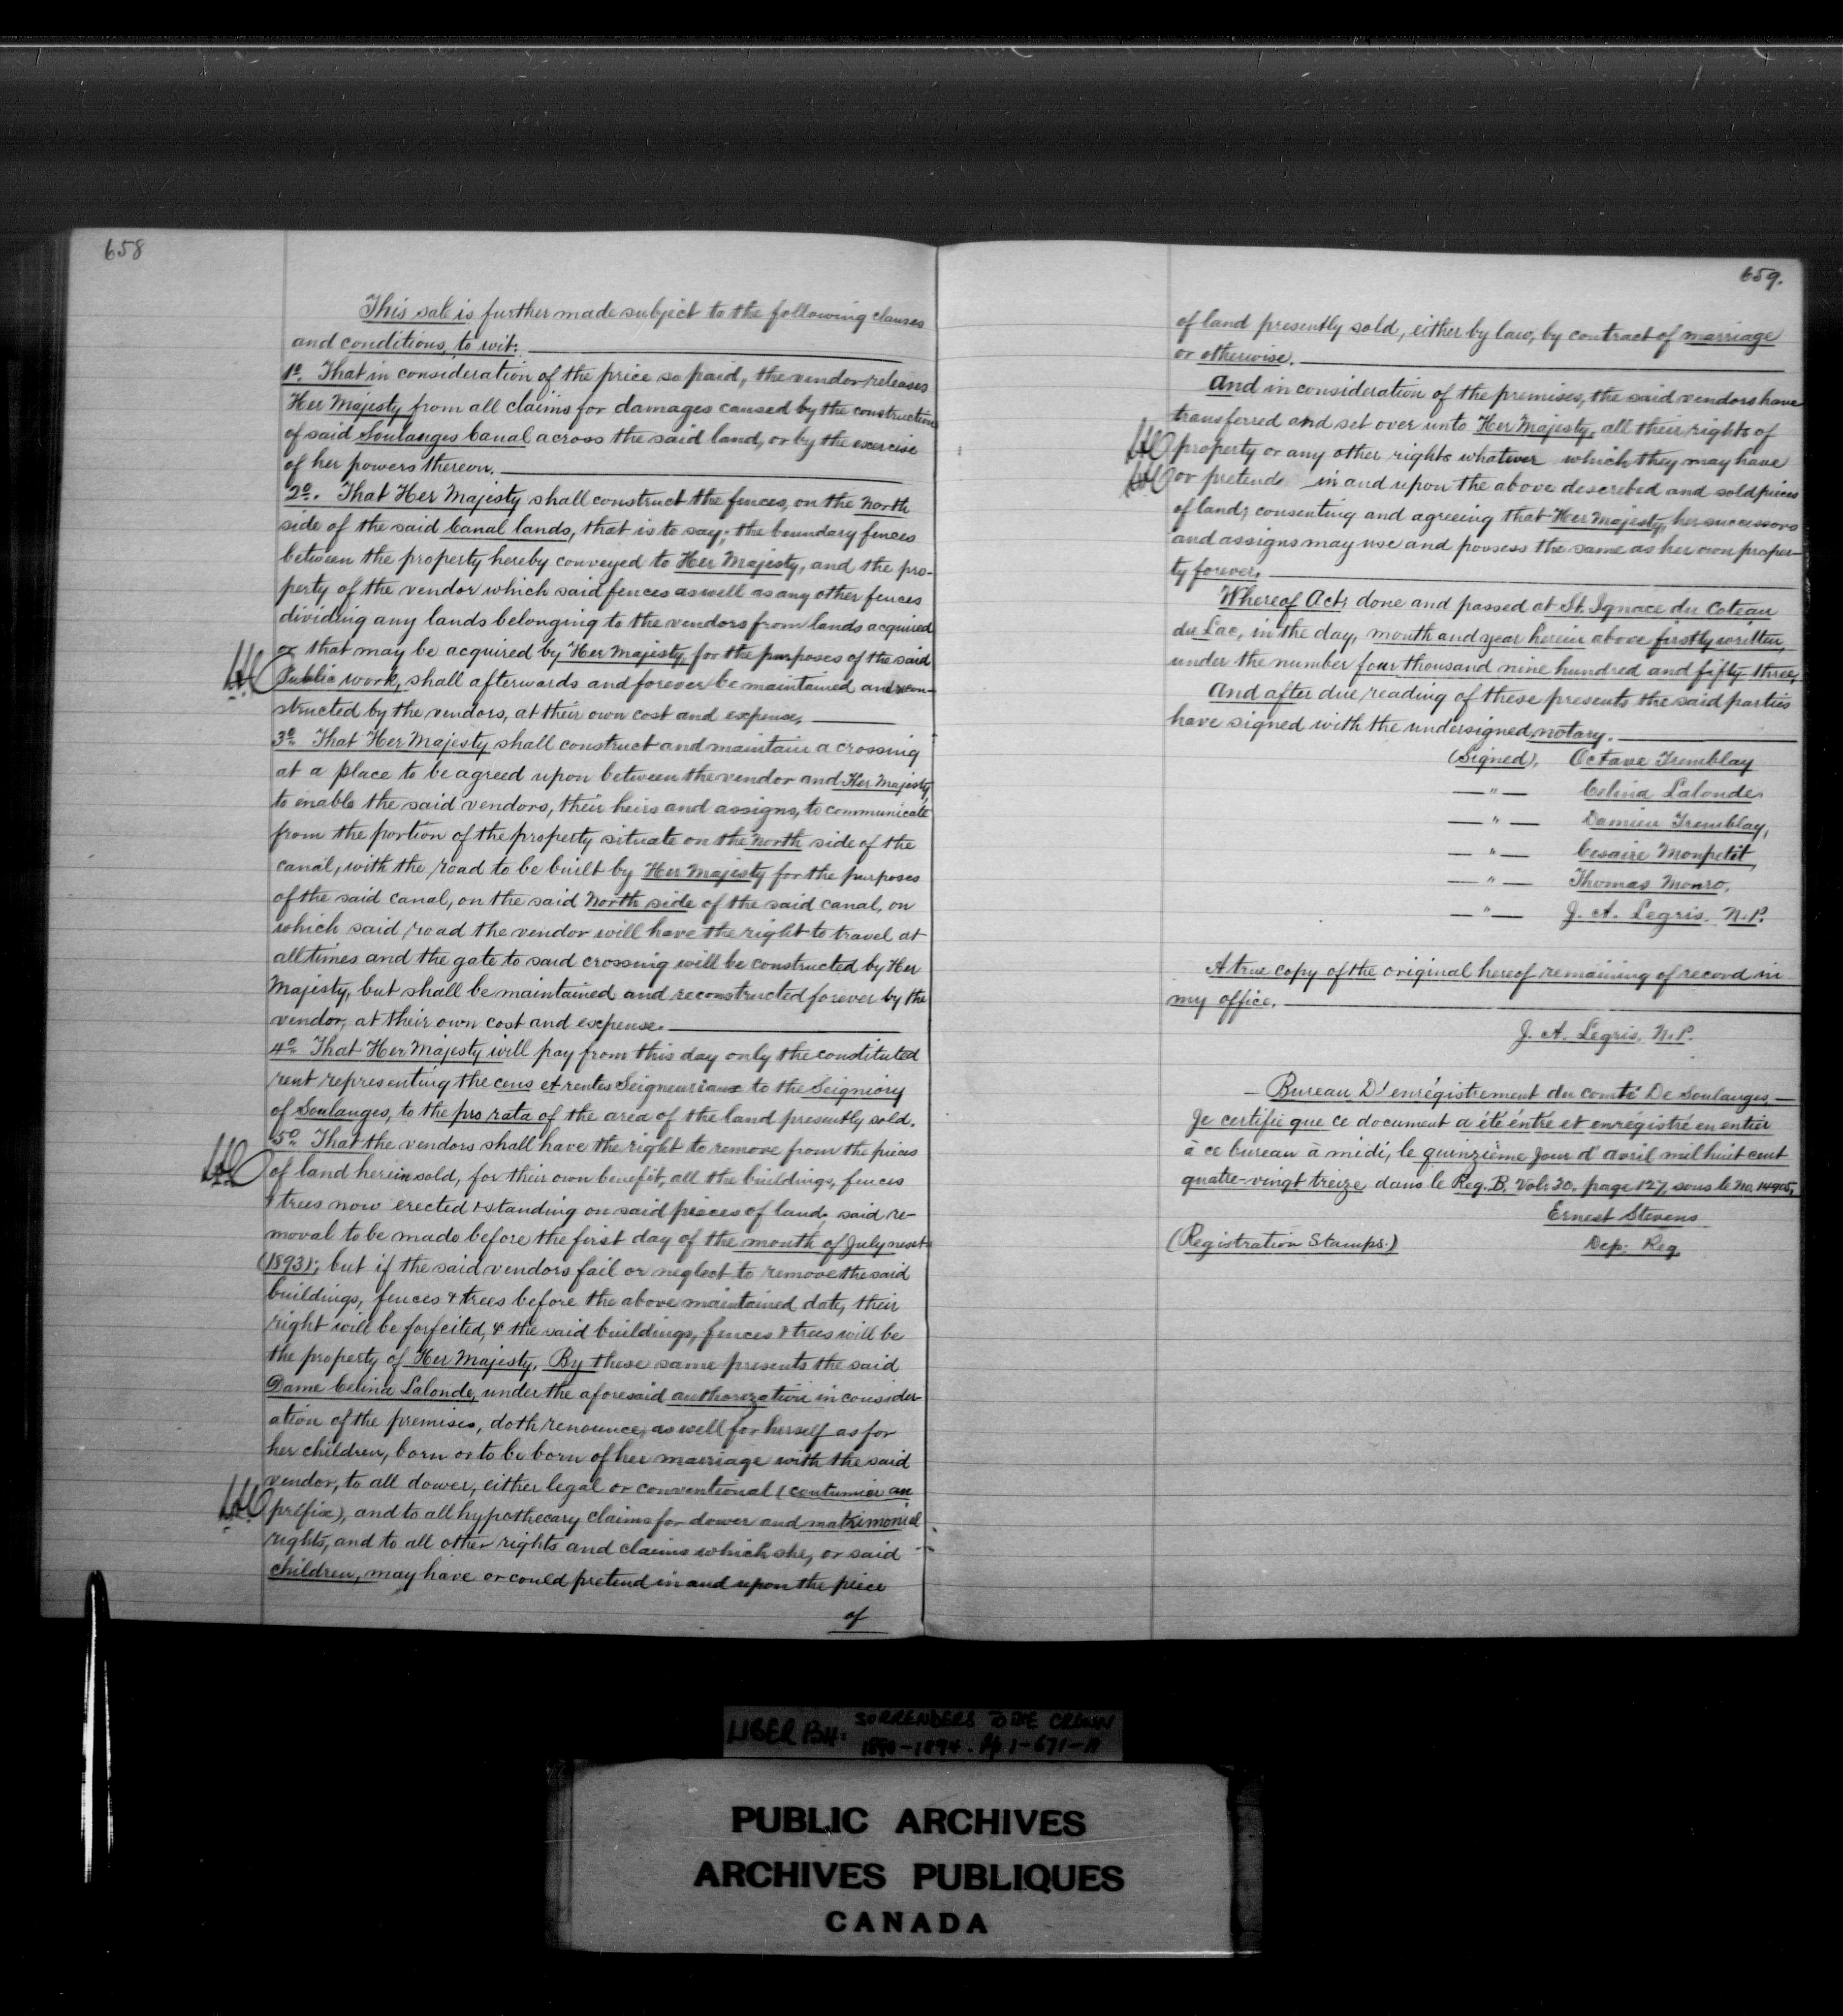 658
This sale is further made subject to the following clauses
and conditions, to wit:
1º. That in consideration of the price so paid, the vendor releases
Her Majesty from all claims for damages caused by the construction
of said Soulanges Canal across the said land, or by the exercise
of her powers thereon.
2º. That Her Majesty shall construct the fences, on the North
side of the said Canal lands, that is to say; the boundary fences
between the property hereby conveyed to Her Majesty, and the pro-
perty of the vendor which said fences as well as any other fences
dividing any lands belonging to the vendors from lands acquired
or that may be acquired by Her Majesty, for the purposes of the said
Public work, shall afterwards and forever be maintained and recon-
structed by the vendors, at their own cost and expense,
3º. That Her Majesty shall construct and maintain a crossing
at a place to be agreed upon between the vendor and Her Majesty,
to enable the said vendors, their heirs and assigns, to communicate
from the portion of the property situate on the North side of the
canal, with the road to be built by Her Majesty for the purposes
of the said canal, on the said North side of the said canal, on
which said road the vendor will have the right to travel at
all times and the gate to said crossing will be constructed by Her
Majesty, but shall be maintained and reconstructed forever by the
vendor, at their own cost and expense.
4º. That Her Majesty will pay from this day only the constituted
rent representing the cens et rentes Seigneuriaux to the Seigniory
of Soulanges, to the pro rata of the area of the land presently sold.
5º. That the vendors shall have the right to remove from the pieces
of land herein sold, for their own benefit, all the buildings, fences
& trees now erected & standing on said pieces of land, said re-
moval to be made before the first day of the month of July next
(1893); but if the said vendors fail or neglect to remove the said
buildings, fences & trees before the above maintained date, their
right will be forfeited, & the said buildings, fences & trees will be
the property of Her Majesty. By these same presents the said
Dame Celina Lalonde, under the aforesaid authorization in consider-
ation of the premises, doth renounce, as well for herself as for
her children, born or to be born of her marriage with the said
vendor, to all dower, either legal or conventional (coutumier au
préfix), and to all hypothecary claims for dower and matrimonial
rights, and to all other rights and claims which she, or said
children, may have or could pretend in and upon the piece
of
659.
of land presently sold, either by law, by contract of marriage
or otherwise.
And in consideration of the premises, the said vendors have
transferred and set over unto Her Majesty, all their rights of
property or any other rights whatever which they may have
or pretend in and upon the above described and sold pieces
of land, consenting and agreeing that Her Majesty, her successors
and assigns may use and possess the same as her own proper-
ty forever.
Whereof Act, done and passed at St. Ignace du Coteau
du Lac, in the day, month and year herein above firstly written,
under the number four thousand nine hundred and fifty-three,
And after due reading of these presents the said parties
have signed with the undersigned notary.
(Signed), Octave Tremblay
— " — Celina Lalonde
— " — Damien Tremblay,
— " — Cesaire Monpetit
— " — Thomas Monro,
— " — J. A. Legris. N.P.
A true copy of the original hereof remaining of record in
my office.
J. A. Legris, N.P.
— Bureau D'enrégistrement du comté De Soulanges —
Je certifie que ce document a été éntré et enrégistré en entier
à ce bureau à midi, le quinzième jour d'avril mil huit cent
quatre-vingt treize dans le Reg. B. Vol: 30. page 127, sous le No. 14905,
Ernest Stevens
(Registration Stamps.) Dep: Reg.
LIBER BH: SURRENDERS TO THE CROWN
1890-1894. Pp. 1-671-A
PUBLIC ARCHIVES
ARCHIVES PUBLIQUES
CANADA